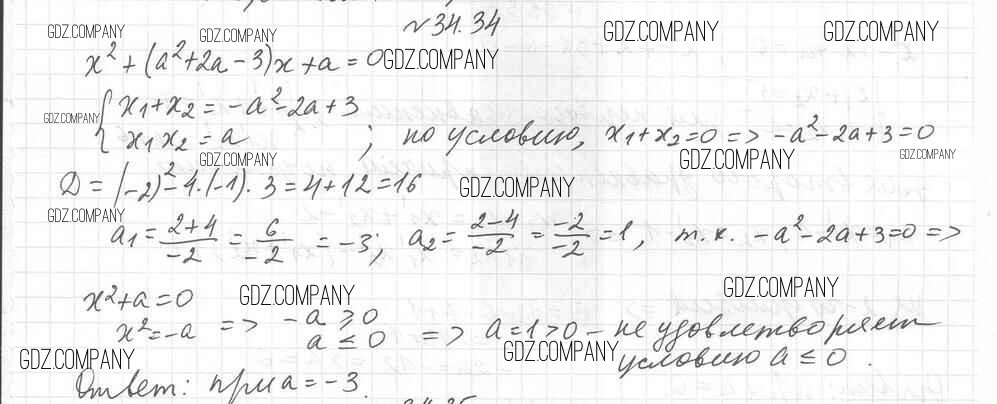 № 34.34
GDZ.COMPANY GDZ.COMPANY GDZ.COMPANY GDZ.COMPANY
x² + (a² + 2a – 3)x + a = 0 GDZ.COMPANY
{ x₁ + x₂ = –a² – 2a + 3
GDZ.COMPANY x₁x₂ = a ; по условию, x₁ + x₂ = 0 => –a² – 2a + 3 = 0
GDZ.COMPANY GDZ.COMPANY GDZ.COMPANY
D = (–2)² – 4·(–1)·3 = 4 + 12 = 16 GDZ.COMPANY
GDZ.COMPANY
a₁ = (2+4)/(–2) = 6/(–2) = –3; a₂ = (2–4)/(–2) = (–2)/(–2) = 1, т.к. –a² – 2a + 3 = 0 =>
x² + a = 0 GDZ.COMPANY GDZ.COMPANY
x² = –a => –a ≥ 0
a ≤ 0 => a = 1 > 0 – не удовлетворяет
GDZ.COMPANY GDZ.COMPANY условию a ≤ 0.
Ответ: при a = –3.